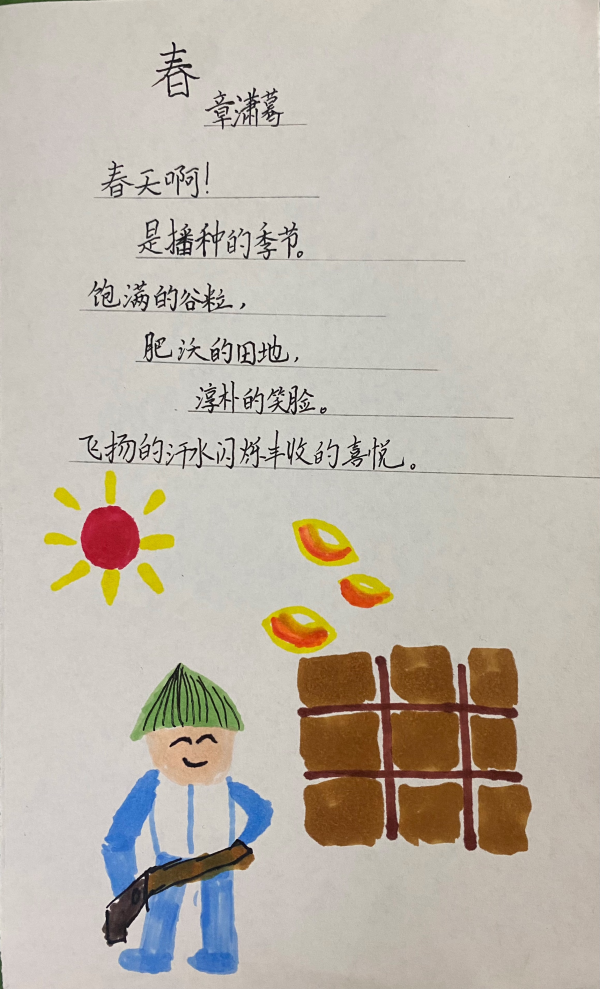 春
章潇蓦
春天啊！
是播种的季节。
饱满的谷粒，
肥沃的田地，
淳朴的笑脸。
飞扬的汗水闪烁丰收的喜悦。